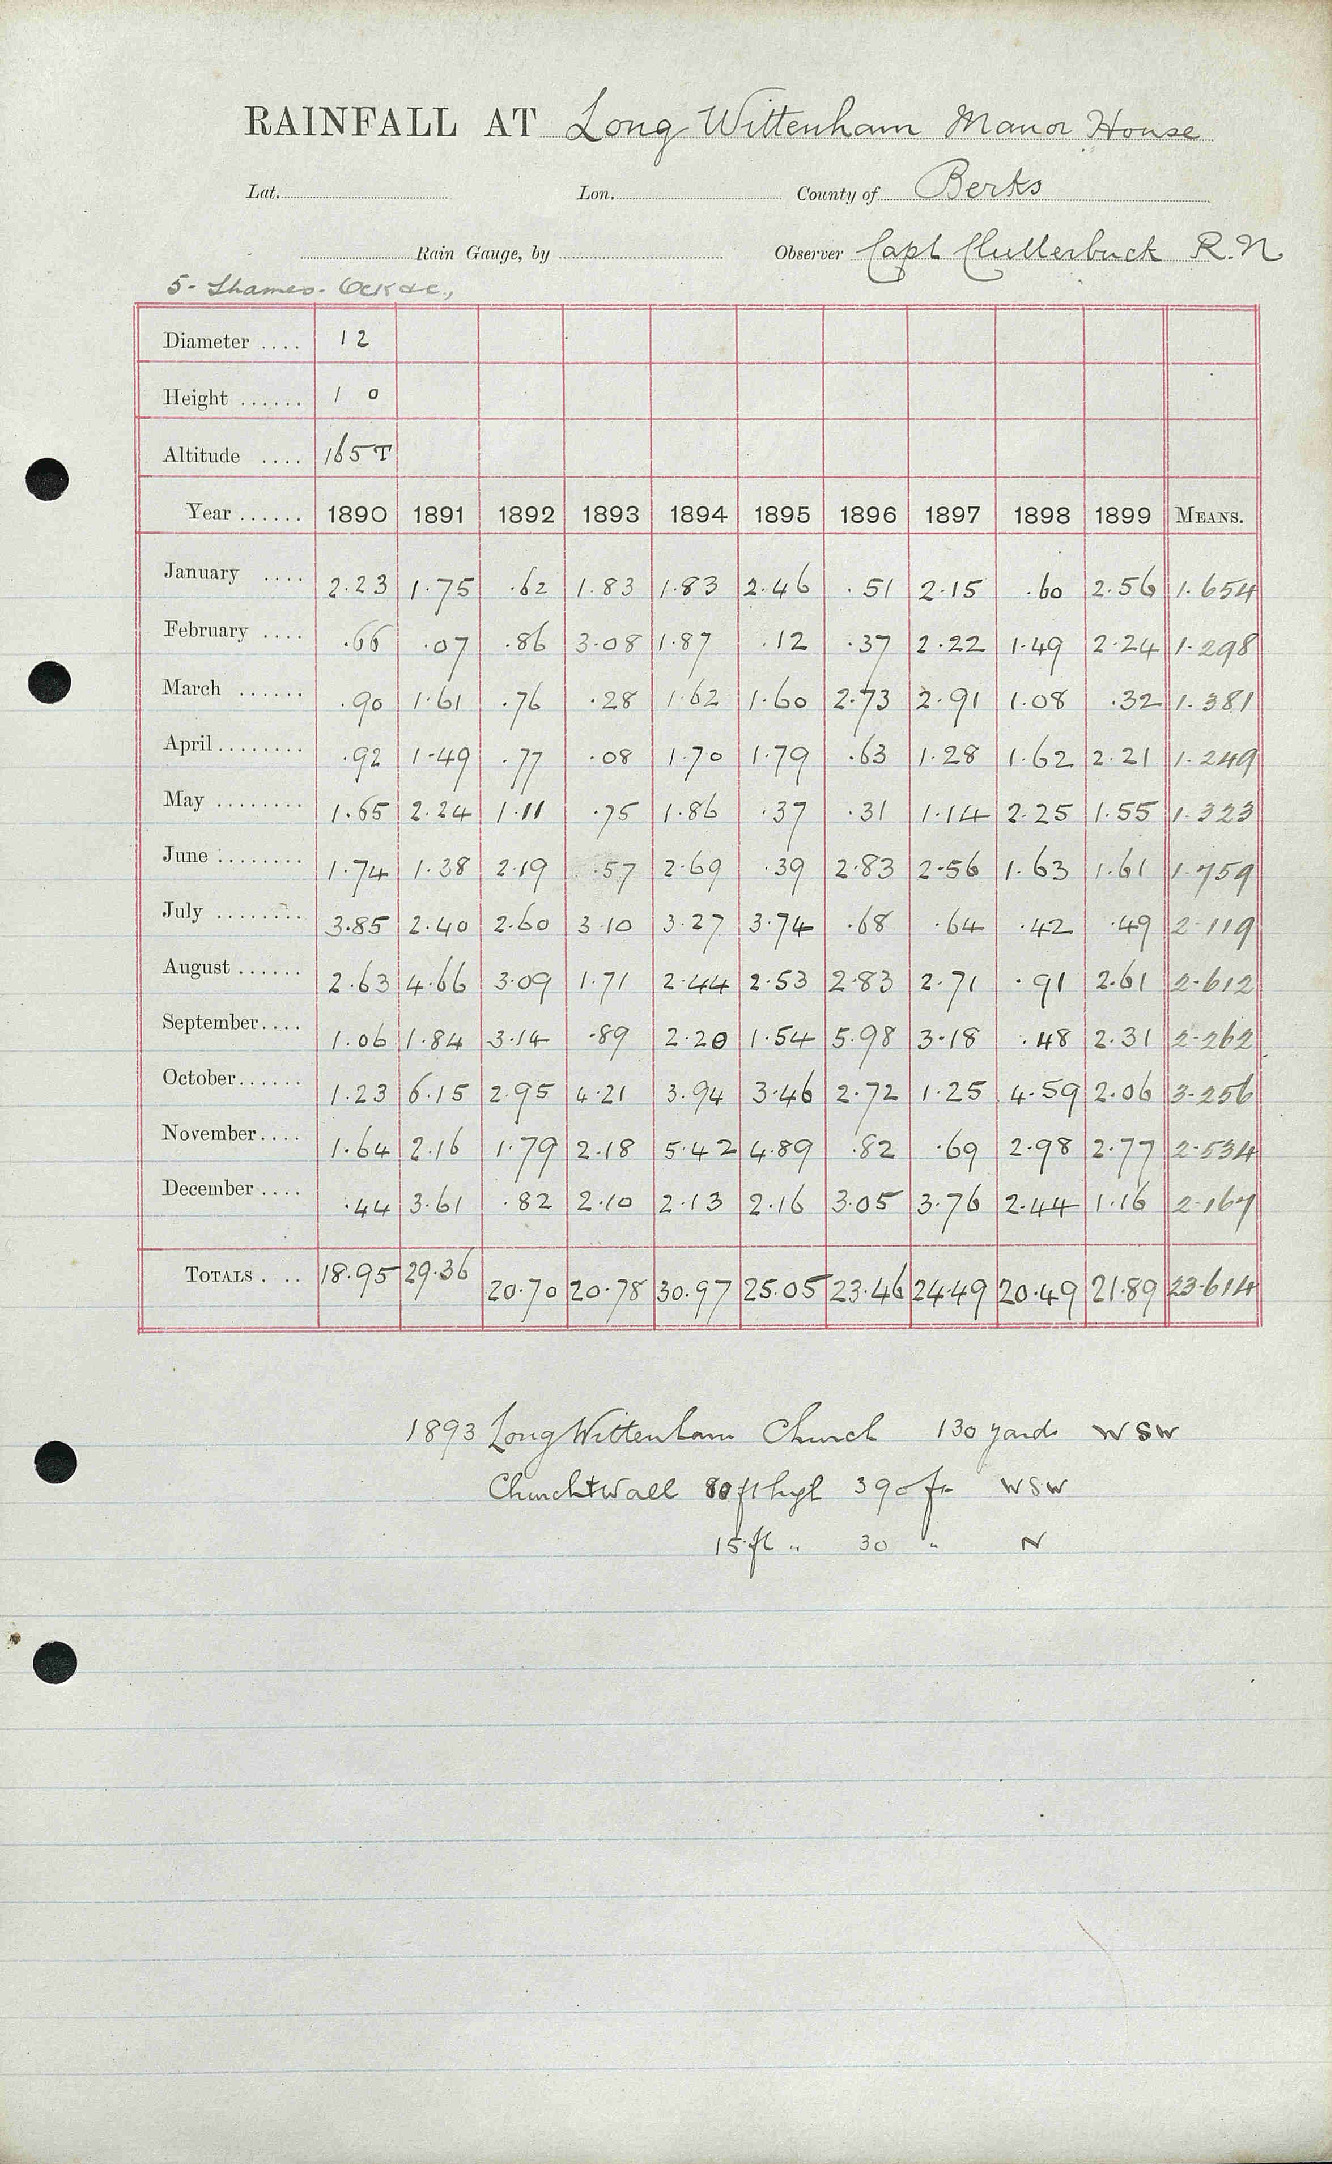 RAINFALL AT Long Wittenham Manor House
Lat. Lon. County of Berks
Rain Gauge, by Observer Capt Clutterbuck R.N
5. Thames. Ock &c.,
Diameter .... 12
Height ...... 1 0
Altitude .... 165 T
Year ...... 1890 1891 1892 1893 1894 1895 1896 1897 1898 1899 MEANS.
January .... 2.23 1.75 .62 1.83 1.83 2.46 .51 2.15 .60 2.56 1.654
February .... .66 .07 .86 3.08 1.87 .12 .37 2.22 1.49 2.24 1.298
March ...... .90 1.61 .76 .28 1.62 1.60 2.73 2.91 1.08 .32 1.381
April ........ .92 1.49 .77 .08 1.70 1.79 .63 1.28 1.62 2.21 1.249
May ........ 1.65 2.24 1.11 .75 1.86 .37 .31 1.14 2.25 1.55 1.323
June ........ 1.74 1.38 2.19 .57 2.69 .39 2.83 2.56 1.63 1.61 1.759
July ........ 3.85 2.40 2.60 3.10 3.27 3.74 .68 .64 .42 .49 2.119
August ...... 2.63 4.66 3.09 1.71 2.44 2.53 2.83 2.71 .91 2.61 2.612
September .... 1.06 1.84 3.14 .89 2.20 1.54 5.98 3.18 .48 2.31 2.262
October ...... 1.23 6.15 2.95 4.21 3.94 3.46 2.72 1.25 4.59 2.06 3.256
November .... 1.64 2.16 1.79 2.18 5.42 4.89 .82 .69 2.98 2.77 2.534
December .... .44 3.61 .82 2.10 2.13 2.16 3.05 3.76 2.44 1.16 2.167
TOTALS .... 18.95 29.36 20.70 20.78 30.97 25.05 23.46 24.49 20.49 21.89 23.614
1893 Long Wittenham Church 130 yards WSW
Church + Wall 80 ft hgh 390 ft WSW
15 ft " 30 " N